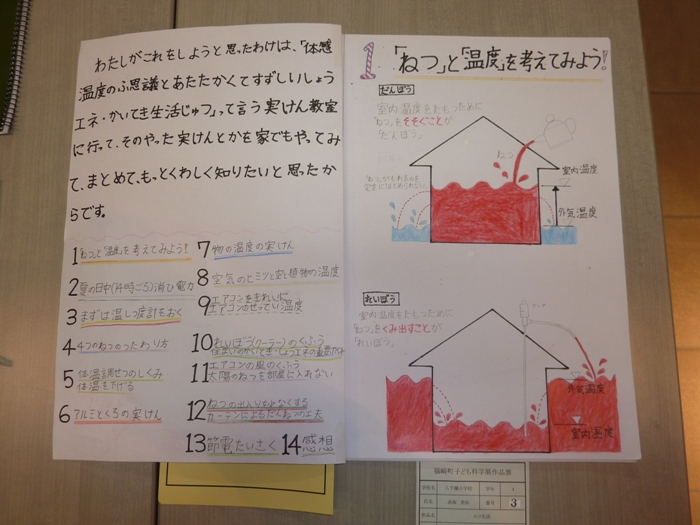 わたしがこれをしようと思ったわけは、「体感
温度のふ思議とあたたかくてすずしいしょう
エネ・かいてき生活じゅつ」って言う実けん教室
に行って、そのやった実けんとかを家でもやってみ
て、まとめて、もっとくわしく知りたいと思ったか
らです。
1「ねつ」と「温度」を考えてみよう!
2 夏の日中(14時ごろ)消ひ電力
3 まずは温しつ度計をおく
4 4つのねつのつたわり方
5 体温調せつのしくみ
体温を下げる
6 アルミとくろの実けん
7 物の温度の実けん
8 空気のヒミツと窓と植物の温度
9 エアコンをきれいに
エアコンのせってい温度
10 れいぼう(クーラー)のくふう
11 エアコンの風のくふう
太陽のねつを部屋に入れない
12 ねつの出入りを少なくする
カーテンによるだんねつの工夫
13 節電たいさく
14 感想
1「ねつ」と「温度」を考えてみよう!
だんぼう
室内温度をたもつために
「ねつ」をそそぐことが
「だんぼう」
ねつ
室内温度
外気温度
れいぼう
室内温度をたもつために
「ねつ」をくみ出すことが
「れいぼう」
ポンプ
外気温度
室内温度
福崎町子ども科学展作品票
学校名
学年
氏名
番号
3
作品名